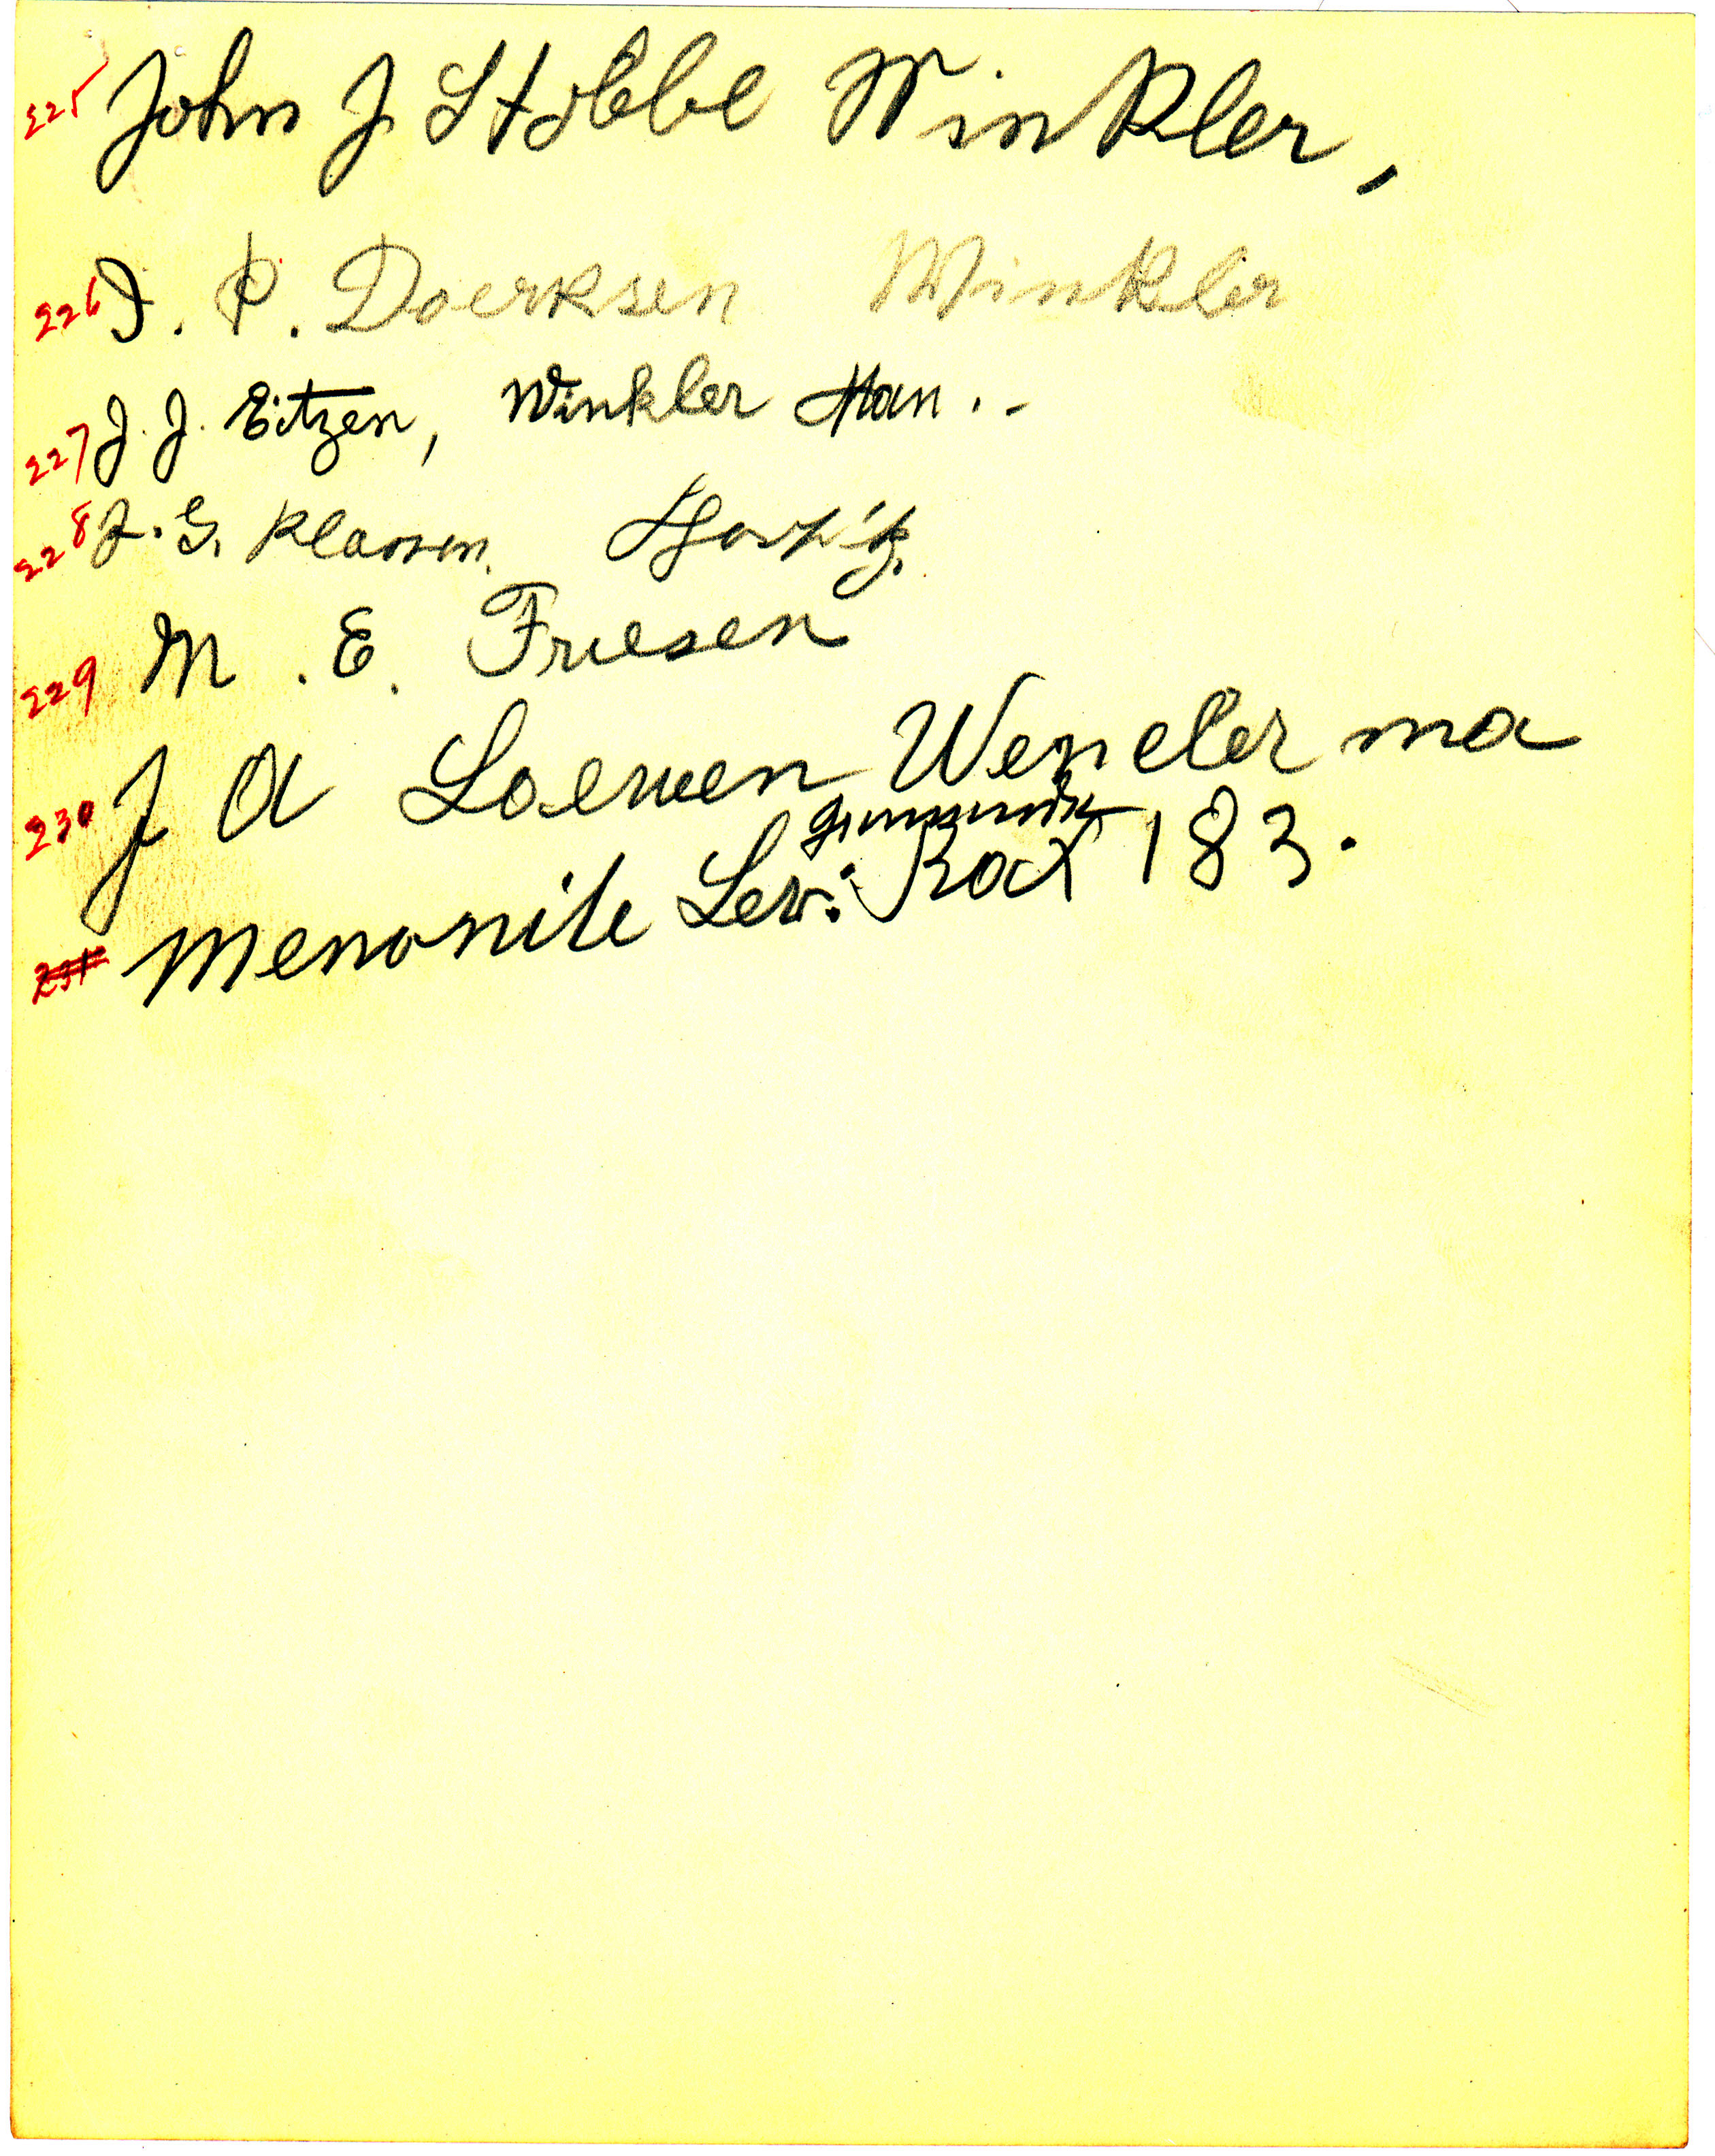 225 John J. Stobbe Winkler,
226 J. P. Doerksen Winkler
227 J. J. Eitzen, Winkler Man..
228 J. G. Klassen.
229 M. E. Friesen
230 J A Loewen Wencler ma
231 Menonite Box 183.